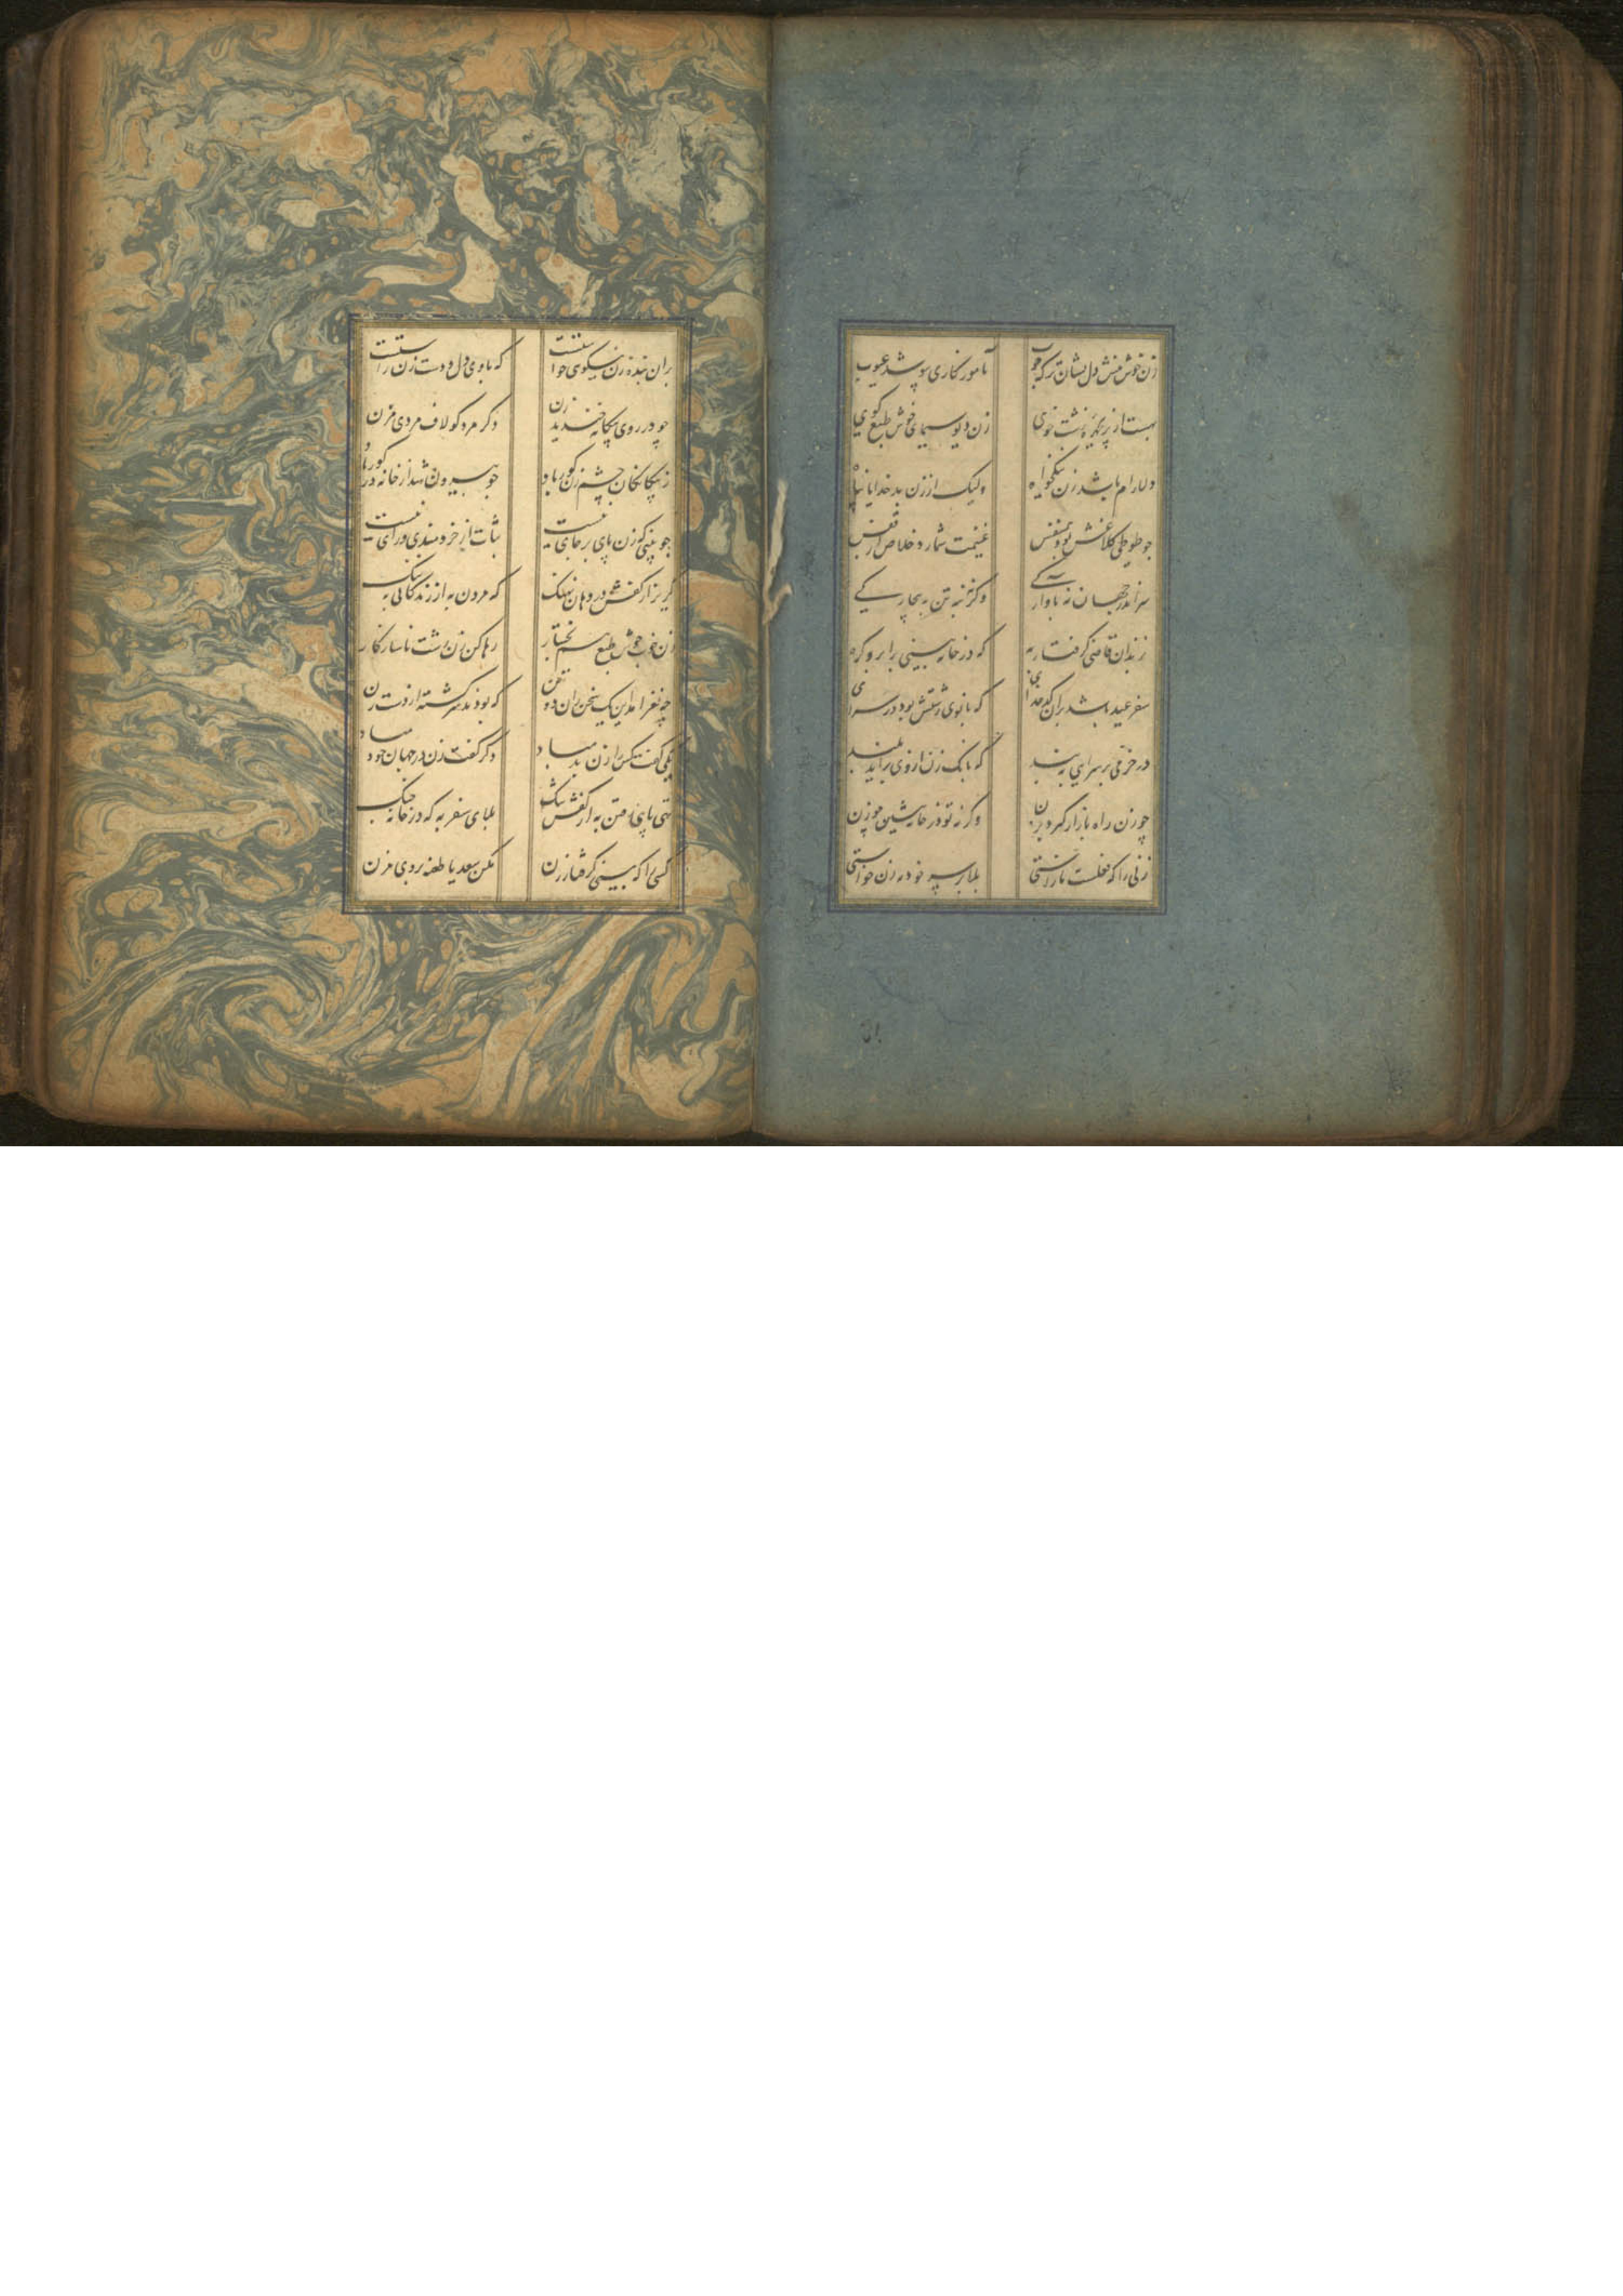 زن خوش منش دل نشان تر که خوب
کاری بپوشد عیوب
ببست از پریچهره زشت خوی
زن دیوسیمای خوش طبع کوی
دلارام باشد زن نیکخواه
ولیک از زن بد خدایا پناه
جو طوطی کلاغش بود همنفس
غنیمت شمارد خلاص از قفس
سر اندر جهان نه باوارکی
وکرنه بنه تن به بیچارکی
زندان قاضی کرفتار به
که در خانه بینی برابرو کره
سفر عید باشد بران کدخدای
که بانوی زشتش بود در سرای
در خرمی بر سرایی ببند
که بانک زن از وی براید بلند
چو زن راه بازار کیرد بزن
وکرنه تو در خانه نشین چو زن
زنی را که جهلست ناراستی
بلا بر سر خود نه زن خواستی
بران بنده نیکوی خواستست
که با وی دل و دست زن راستست
چو در روی بیکانه خندید زن
دکر مرد کو لاف مردی مزن
ز بیکانکان چشم زن کور باد
جو بیرون شد از خانه در کور باد
جو بینی که زن پای بر جای نیست
ثبات از خردمندی و رای نیست
کریز از کفش در دهان نهنک
که مردن به از زندکانی به ننک
زن خوب خوش طبع
رها کن زن زشت ناسازکار
چه نغز امد این یک سخن زان دو تن
که بودند سرکشته از دست زن
یکی کفت کس را زن بد مباد
دکر کفت زن در جهان خود مباد
تهی پای رفتن به از کفش تنک
بلای سفر به که در خانه جنک
کسی را که بینی کرفتار زن
مکن سعدیا طعنه بروی مزن